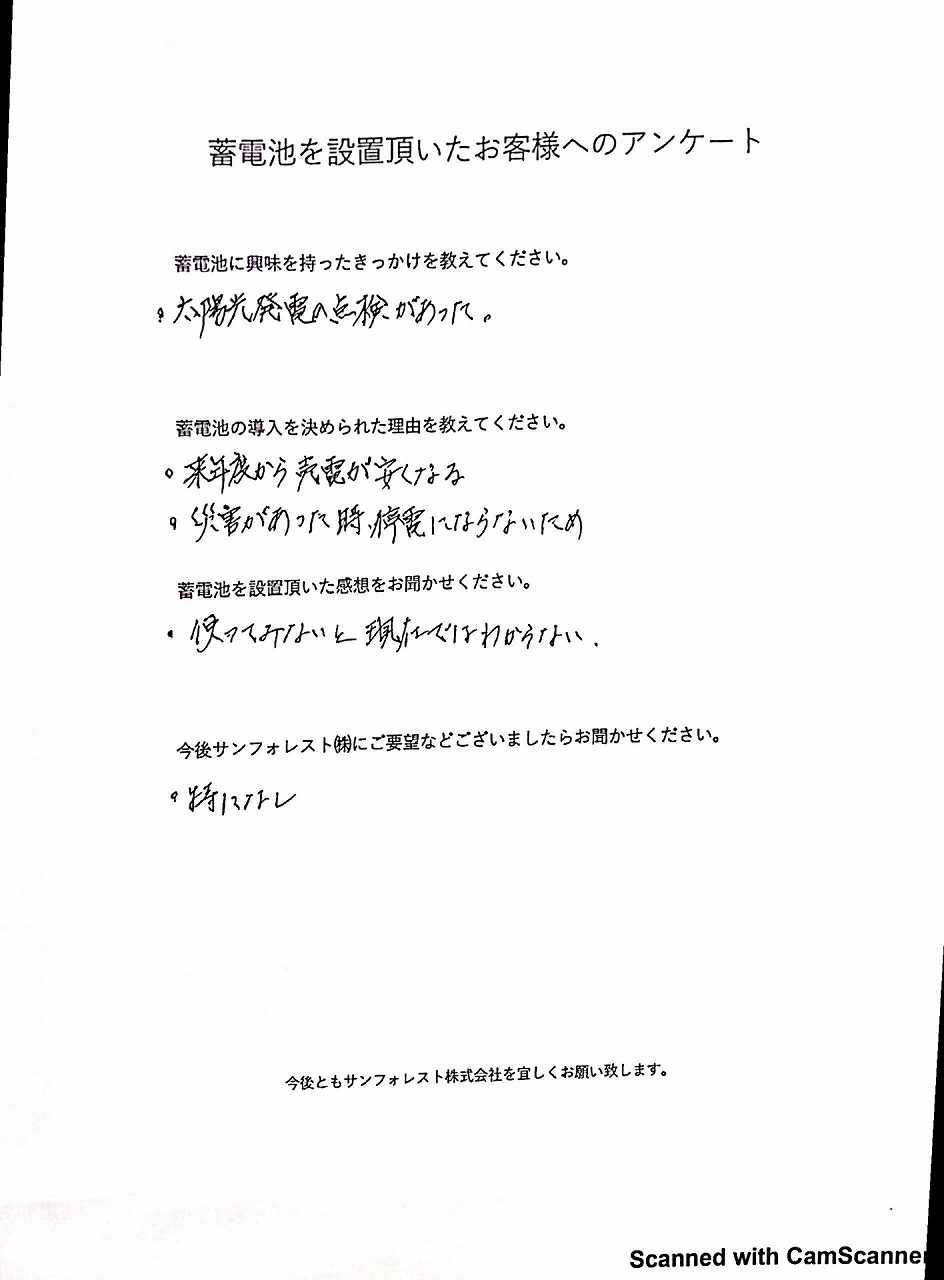 蓄電池を設置頂いたお客様へのアンケート
蓄電池に興味を持ったきっかけを教えてください。
。太陽光発電の点検があった。
蓄電池の導入を決められた理由を教えてください。
。来年度から売電が安くなる
。災害があった時、停電にならないため
蓄電池を設置頂いた感想をお聞かせください。
・使ってみないと現在ではわからない.
今後サンフォレスト㈱にご要望などございましたらお聞かせください。
。特になし
今後ともサンフォレスト株式会社を宜しくお願い致します。
Scanned with CamScanner